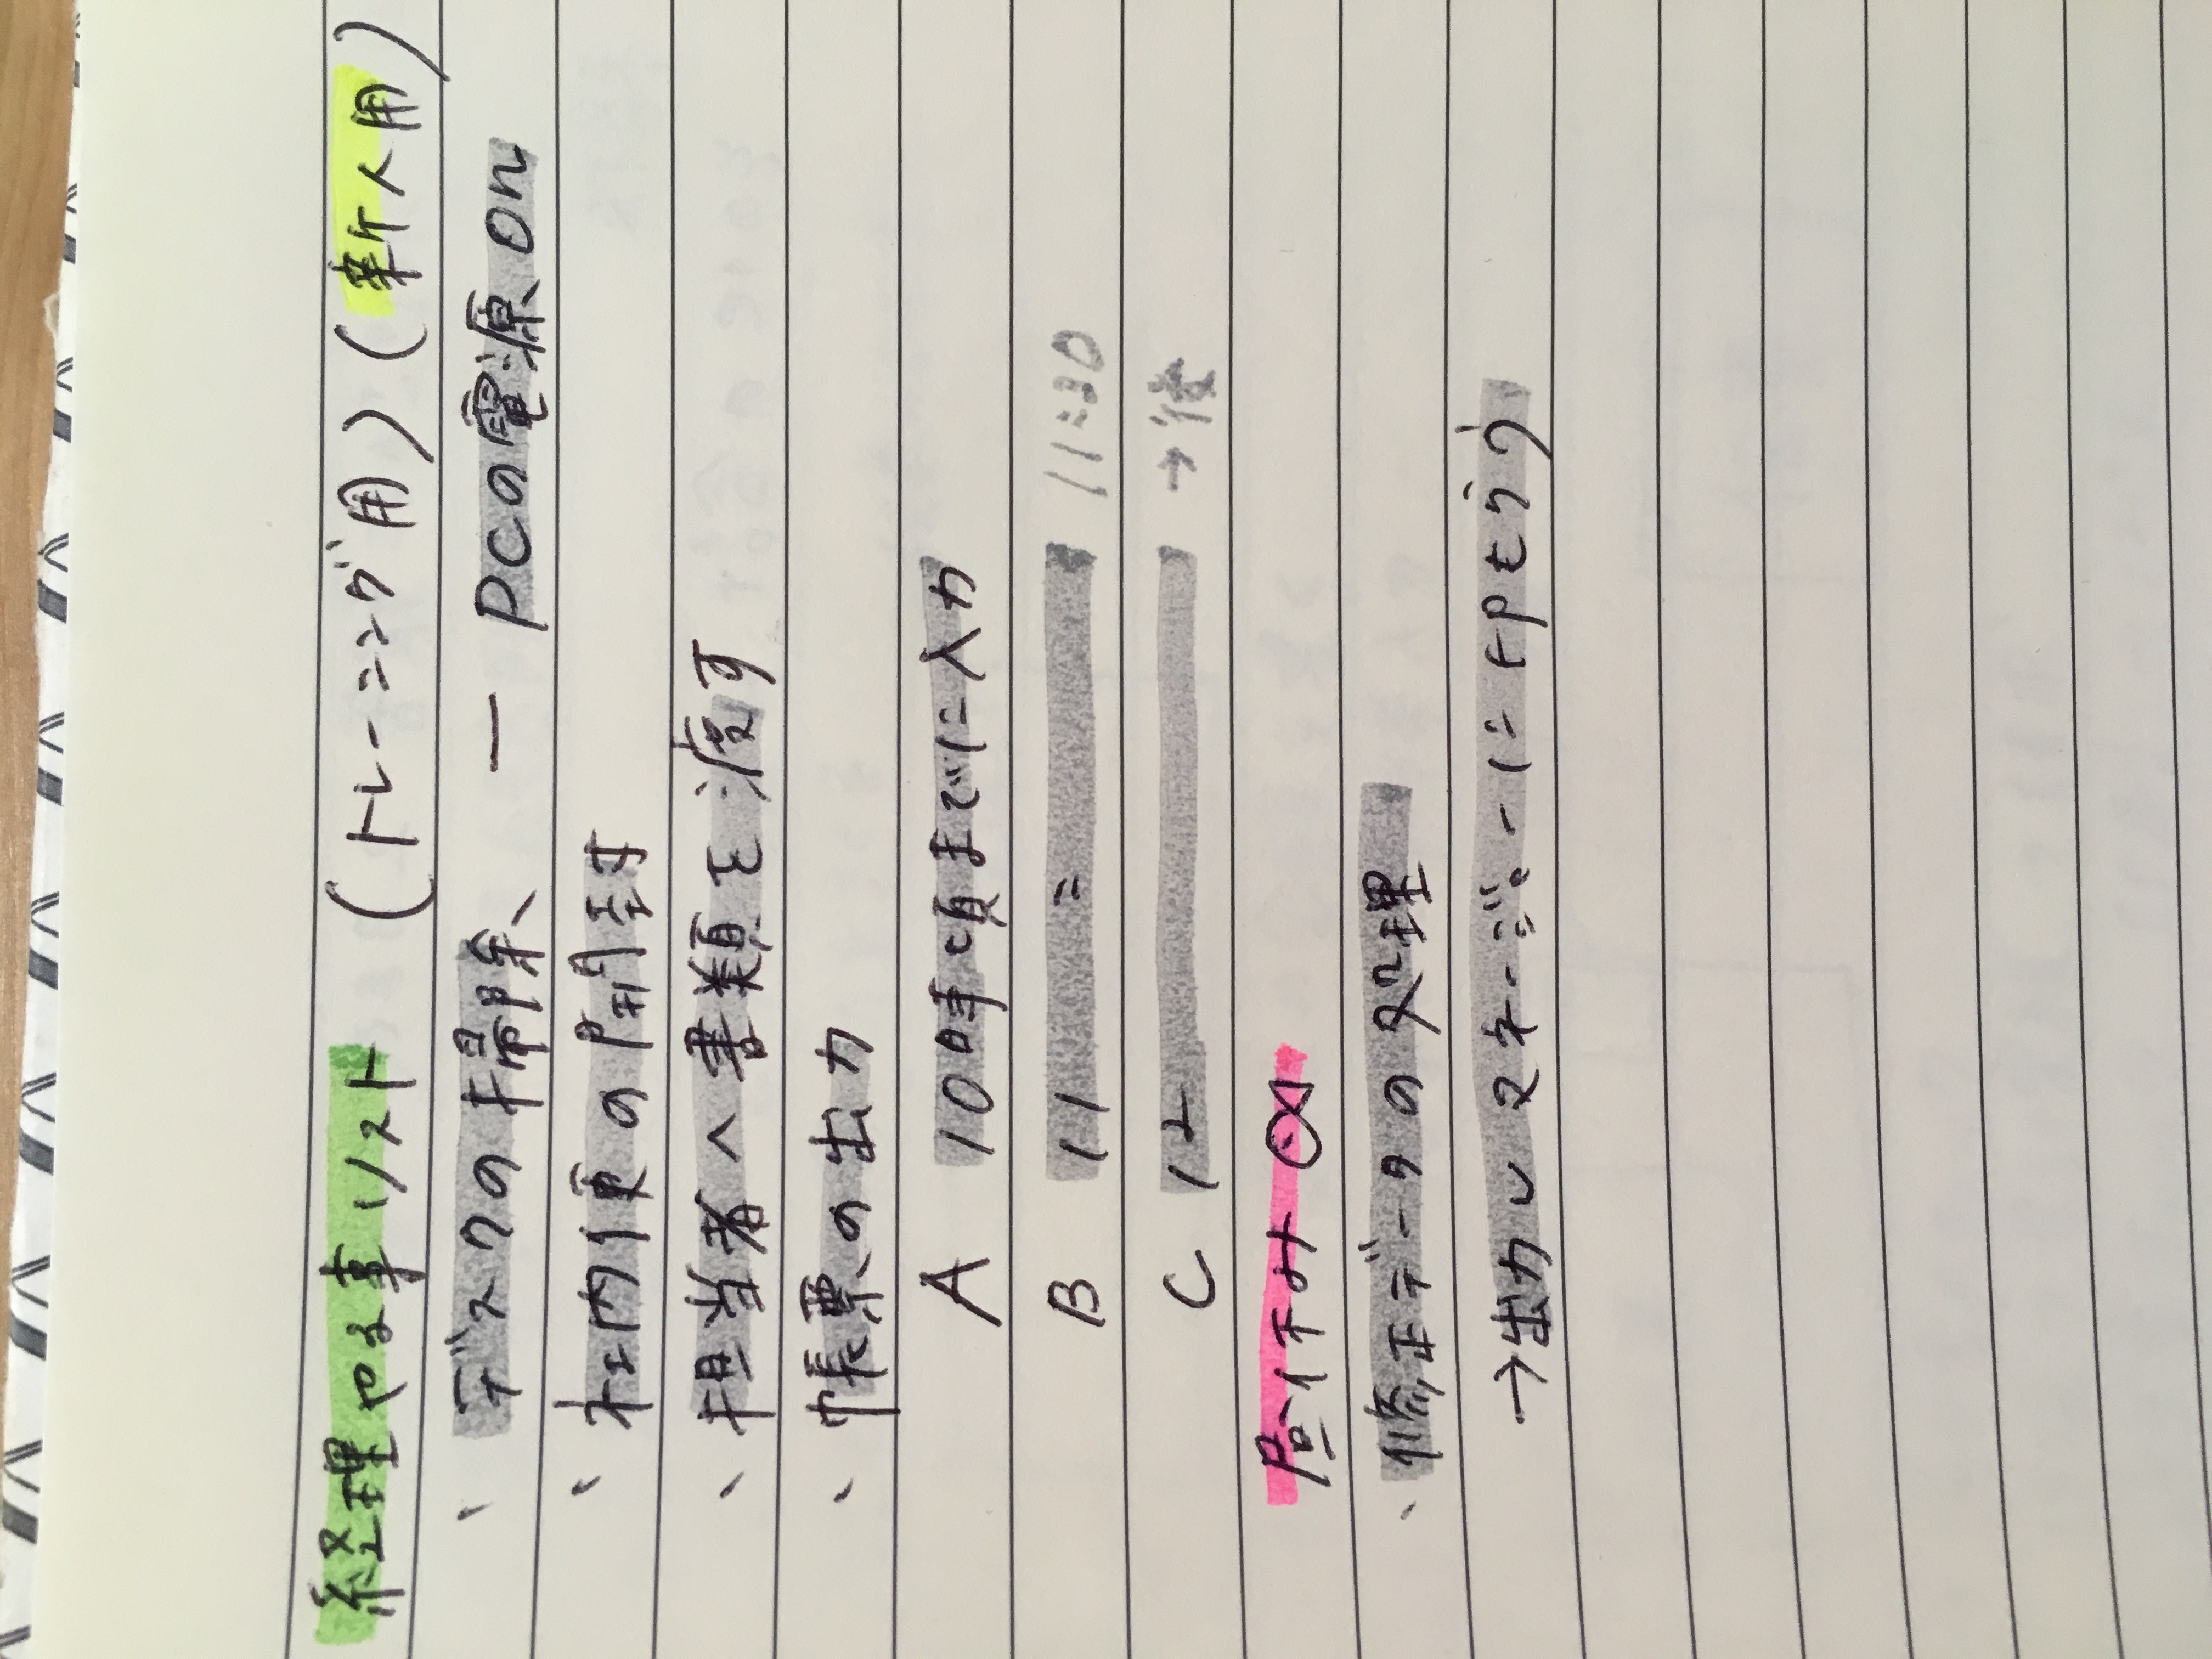 経理やる事リスト (トレーニング用) (新人用)
、デスクの掃除、 ー PCの電源on
、社内便の開封
、担当者へ書類を渡す
、帳票の出力
A 10時頃までに入力
B 11 〃 11:30
C 12 →後
昼イチのみ
、修正データの処理
→出力しマネージャーに印もらう